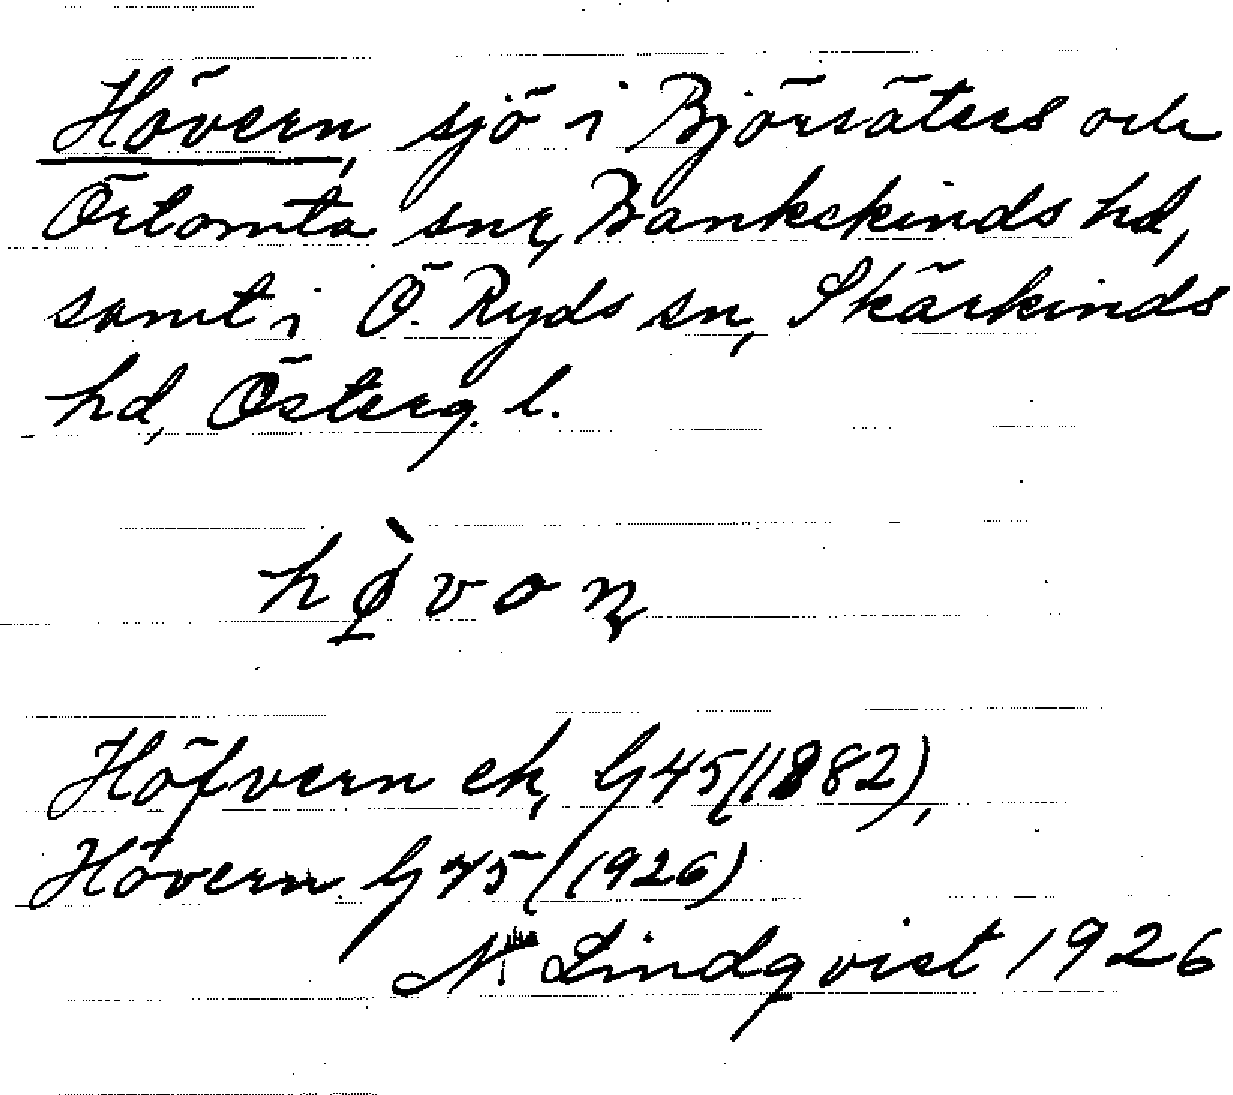 Hövern, sjö i Björsäters och
Örtomta snr, Bankekinds hd,
samt i Ö. Ryds sn, Skärkinds
hd, Österg. l.
hø̀voɳ
Höfvern ek, G45 (1882),
Hövern G45 (1926)
N. Lindqvist 1926